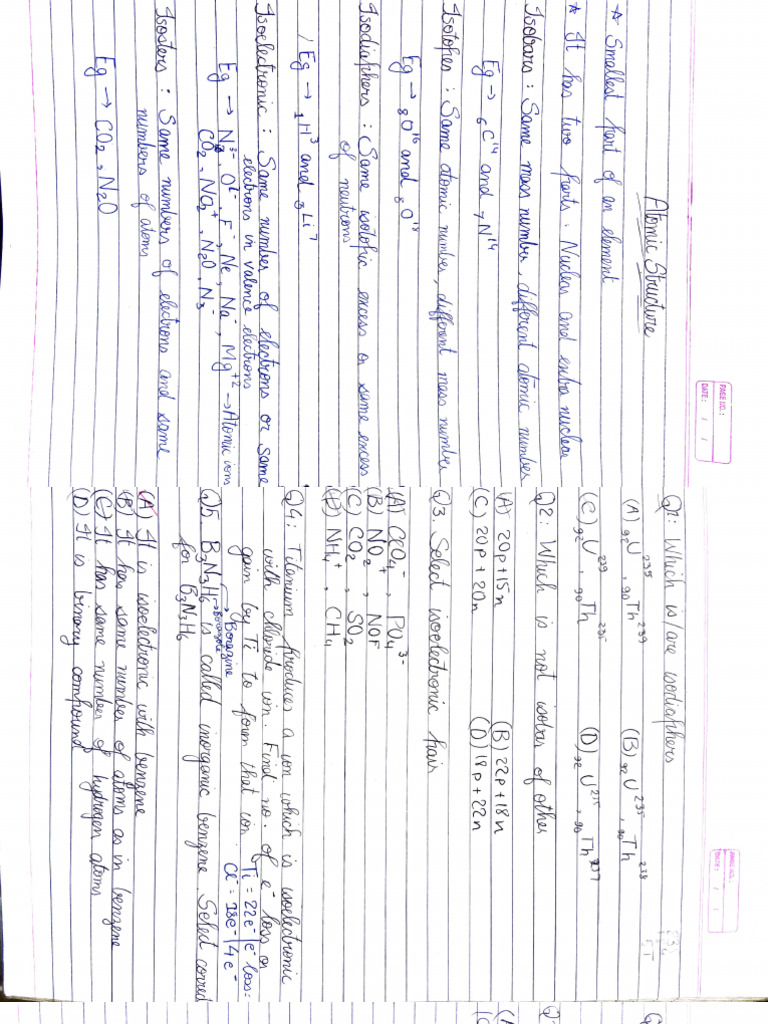 PAGE NO.:
DATE: / /
Atomic Structure
★ Smallest part of an element
★ It has two parts. Nuclear and extra nuclear
Isobars: Same mass number, different atomic number
Eg → ₆C¹⁴ and ₇N¹⁴
Isotopes: Same atomic number, different mass number
Eg → ₈O¹⁶ and ₈O¹⁸
Isodiaphers: (Same isotopic excess or same excess
of neutrons)
Eg → ₁H³ and ₃Li⁷
Isoelectronic: Same number of electrons or same
electrons in valence electrons
Eg → N³⁻, O²⁻, F⁻, Ne, Na⁻, Mg⁺² → Atomic ions
CO₂, NO₂⁺, N₂O, N₃⁻
Isosters: Same numbers of electrons and same
numbers of atoms
Eg → CO₂, N₂O
PAGE NO.:
DATE: / /
Q1: Which is/are isodiaphers
(A) ₉₂U²³⁵, ₉₀Th²³⁹ (B) ₉₂U²³⁵, ₉₀Th²³⁸
(C) ₉₂U²³⁹, ₉₀Th²³⁵ (D) ₉₂U²³⁵, ₉₀Th²³⁷
Q2: Which is not isobar of other
(A) 20p+15n (B) 22p+18n
(C) 20p+20n (D) 18p+22n
Q3. Select isoelectronic pair
(A) ClO₄⁻, PO₄³⁻
(B) NO₂⁺, NOF
(C) CO₂, SO₂
(D) NH₄⁺, CH₄
Q4: Titanium produces a ion which is isoelectronic
with chloride ion. Find no. of e⁻ loss or
gain by Ti to form that ion Ti = 22e⁻ | e⁻ loss=
Cl⁻ = 18e⁻ | 4e⁻
Borazine
Borazole
Q5. B₃N₃H₆ is called inorganic benzene Select correct
for B₃N₃H₆
(A) It is isoelectronic with benzene
(B) It has same number of atoms as in benzene
(C) It has same number of hydrogen atoms
(D) It is binary compound